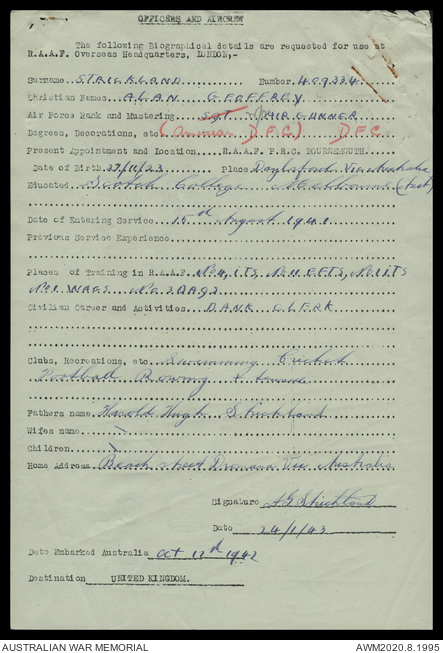 OFFICERS AND AIRCREW
The following Biographical details are requested for use at
R.A.A.F. Overseas Headquarters, LONDON,-
Surname STRICKLAND Number 409334
Christian Names ALAN GEOFFREY
Air Force Rank and Mustering Sgt AIR GUNNER
Degrees, Decorations, etc (American D.F.C.) DFC
Present Appointment and Location R.A.A.F. P.R.C. BOURNEMOUTH.
Date of Birth 27/11/23 Place Daylesford Vic Australia
Educated Scotch College Melbourne (Aust)
Date of Entering Service 15th August 1941
Previous Service Experience
Places of Training in R.A.A.F. No 4 ITS, No 11 EFTS, No 1 ITS
No 1 WAGS No 2 BAGS
Civilian Career and Activities BANK CLERK
Clubs, Recreations, etc Swimming Cricket
Football Rowing & tennis
Fathers name Harold Hugh Strickland
Wifes name
Children
Home Address Beach street Dromana Vic Australia
Signature AG Strickland
Date 24/1/43
Date Embarked Australia Oct 1942
Destination UNITED KINGDOM.
AUSTRALIAN WAR MEMORIAL AWM2020.8.1995